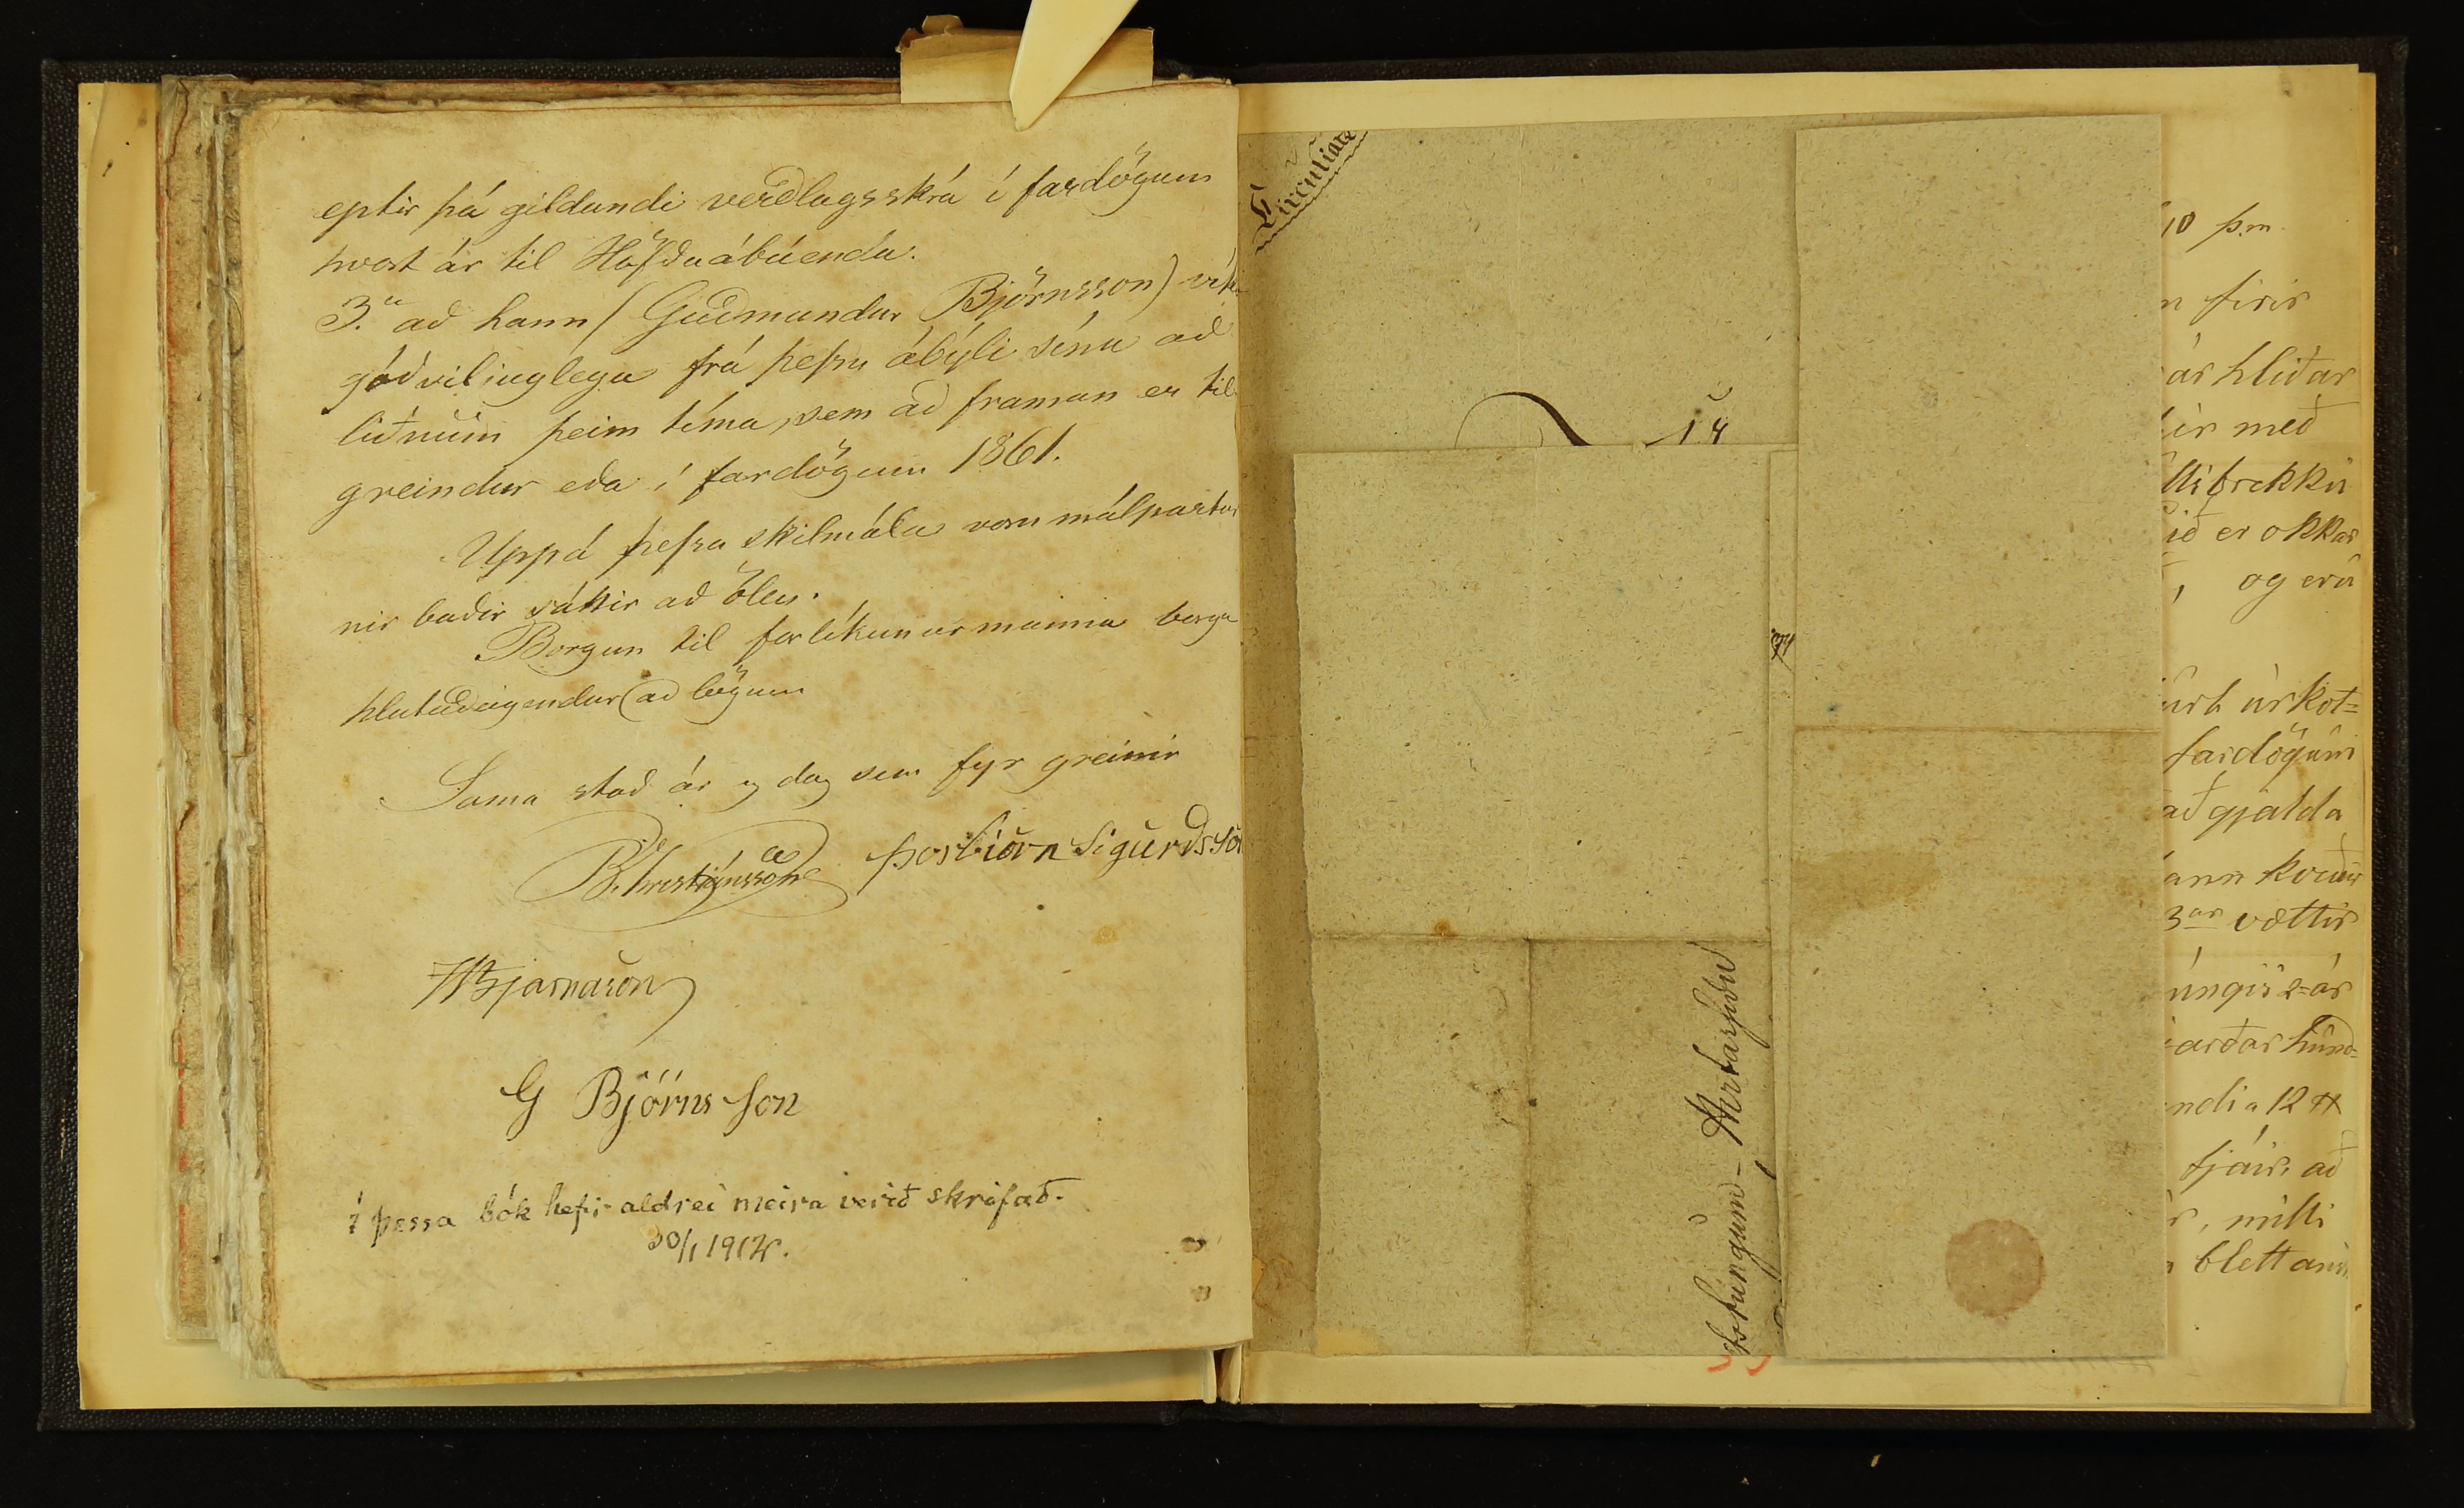 eptir þá gildandi verðlagsskrá í fardögum
hvort ár til Höfðaábúenda.
3.a að hann (Guðmundur Björnsson) víki
góðviliuglega frá þessu ábýli sínu að
liðnum þeim tíma, sem að framan er til
greindur eða í fardögum 1861.
Uppá þessa skilmála voru málpartar
nir baðir sáttir að öllu.
Borgun til forlíkunarmanna borga
hlutaðeigendur að lögum
Sama stað ár og dag sem fyr greinir
B. Christjánsson Þorbiörn Sigurðsson
HBjarnason
G Björnsson
Í þessa bók hefir aldrei meira verið skrifað.
30/1 1914.
Circulaire
14
10 þ.m.
firir
ár hliðar
með
brekku
ið er okkar
, og eru
úr kot=
fardögum
að gjalda
ann
3ar vættir
úngis 2=ár
arðar hund=
12
fjár, að
, milli
blettanns